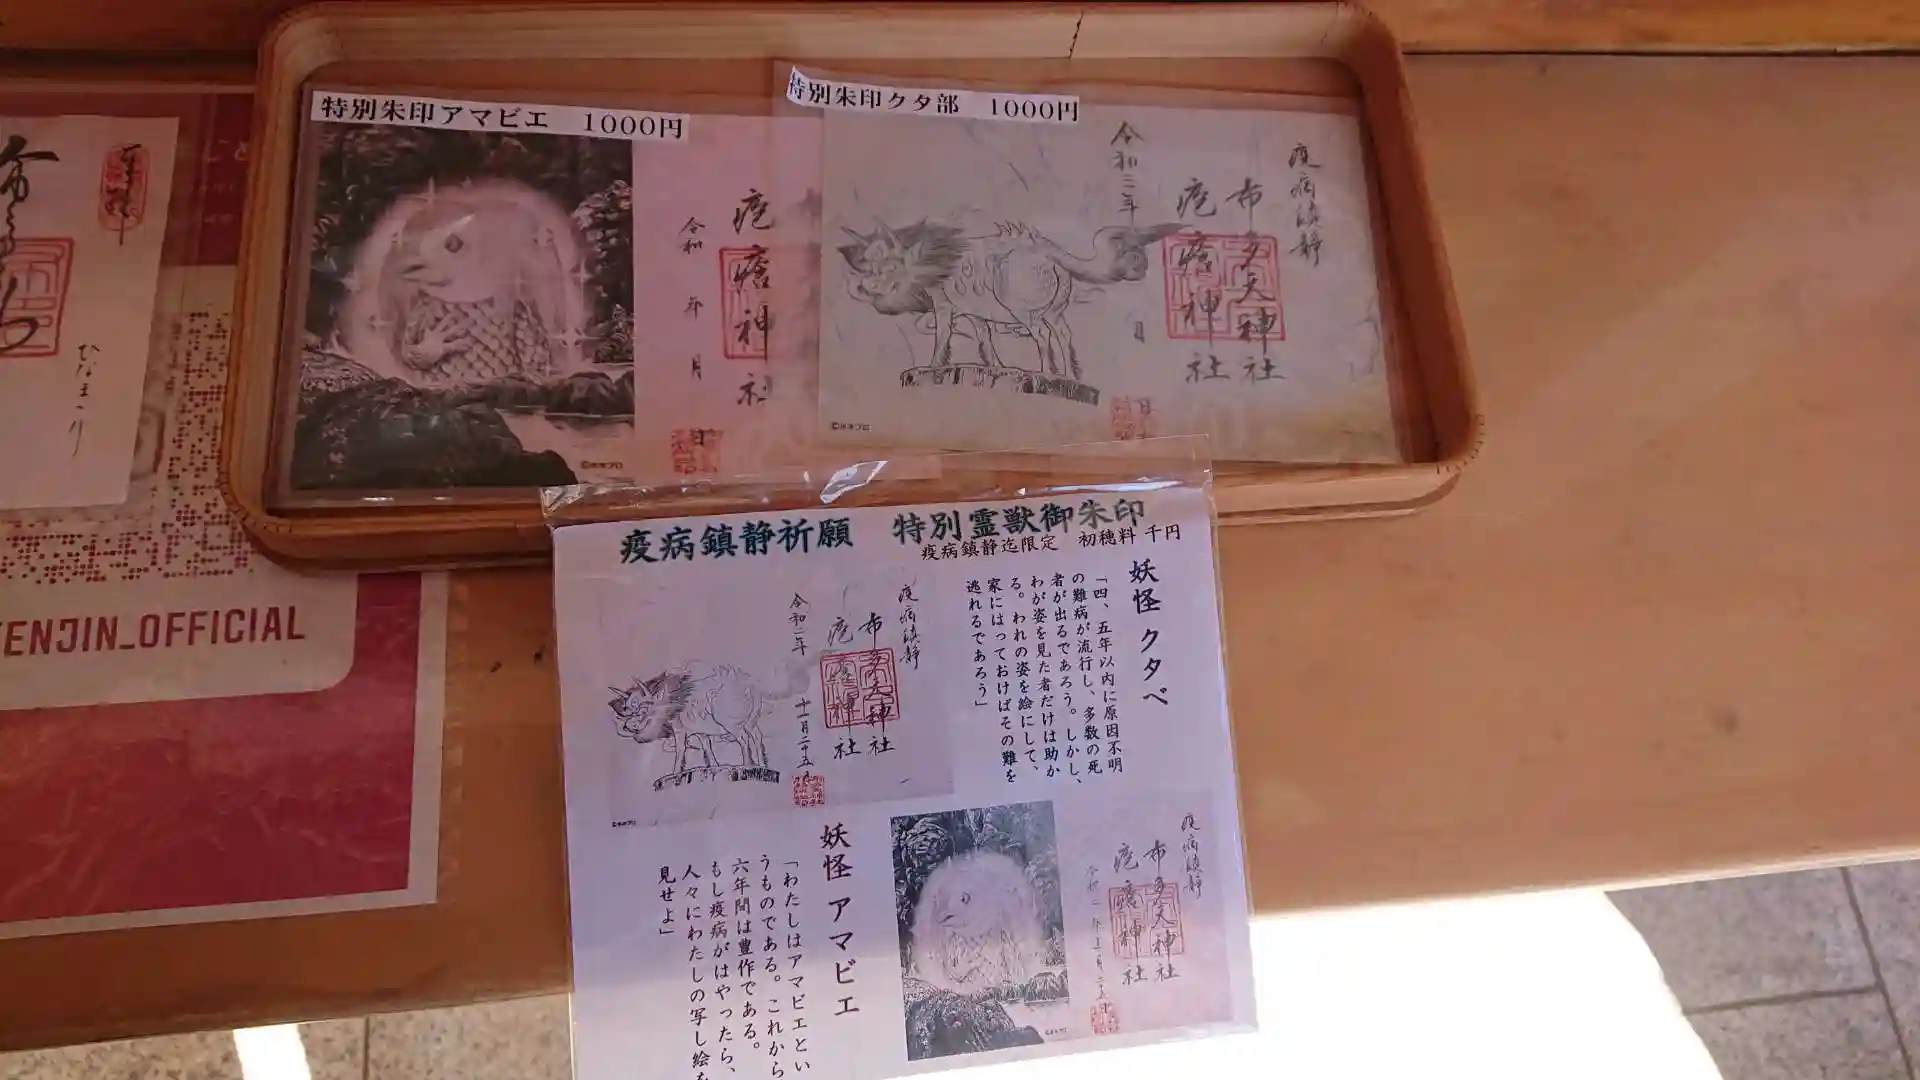 特別朱印アマビエ　1000円
特別朱印クタ部　1000円
疱瘡神社
令和　年　月　日
疫病鎮静
布多天神社
疱瘡神社
令和二年　月　日
©水木プロ
©水木プロ
ひなまつり
TENJIN_OFFICIAL
疫病鎮静祈願　特別霊獣御朱印
疫病鎮静迄限定　初穂料 千円
妖怪 クタベ
「四、五年以内に原因不明
の難病が流行し、多数の死
者が出るであろう。しかし、
わが姿を見た者だけは助か
る。われの姿を絵にして、
家にはっておけばその難を
逃れるであろう」
疫病鎮静
布多天神社
疱瘡神社
令和二年 十一月二十五日
©水木プロ
妖怪 アマビエ
「わたしはアマビエとい
うものである。これから
六年間は豊作である。
もし疫病がはやったら、
人々にわたしの写し絵を
見せよ」
疫病鎮静
布多天神社
疱瘡神社
©水木プロ